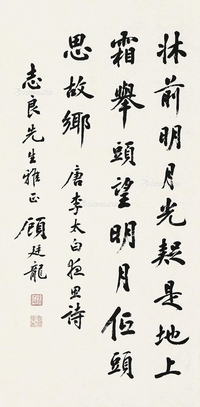 牀前明月光疑是地上
霜舉頭望明月低頭
思故鄉 唐李太白夜思詩
志良先生雅正 顧廷龍